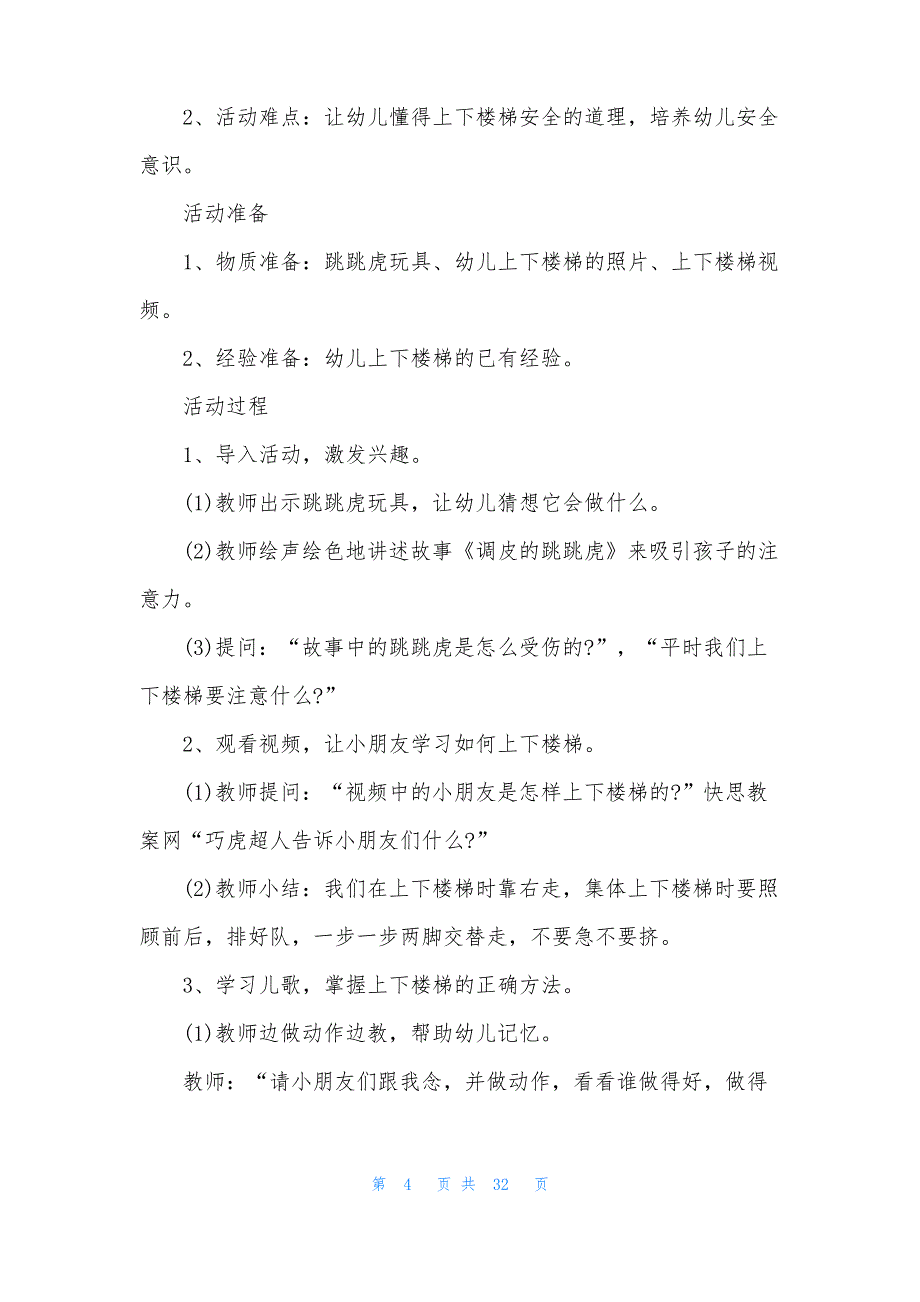 2、活动难点：让幼儿懂得上下楼梯安全的道理，培养幼儿安全
意识。
活动准备
1、物质准备：跳跳虎玩具、幼儿上下楼梯的照片、上下楼梯视
频。
2、经验准备：幼儿上下楼梯的已有经验。
活动过程
1、导入活动，激发兴趣。
(1)教师出示跳跳虎玩具，让幼儿猜想它会做什么。
(2)教师绘声绘色地讲述故事《调皮的跳跳虎》来吸引孩子的注
意力。
(3)提问：“故事中的跳跳虎是怎么受伤的?”，“平时我们上
下楼梯要注意什么?”
2、观看视频，让小朋友学习如何上下楼梯。
(1)教师提问：“视频中的小朋友是怎样上下楼梯的?”快思教
案网“巧虎超人告诉小朋友们什么?”
(2)教师小结：我们在上下楼梯时靠右走，集体上下楼梯时要照
顾前后，排好队，一步一步两脚交替走，不要急不要挤。
3、学习儿歌，掌握上下楼梯的正确方法。
(1)教师边做动作边教，帮助幼儿记忆。
教师：“请小朋友们跟我念，并做动作，看看谁做得好，做得
第 4 页 共 32 页